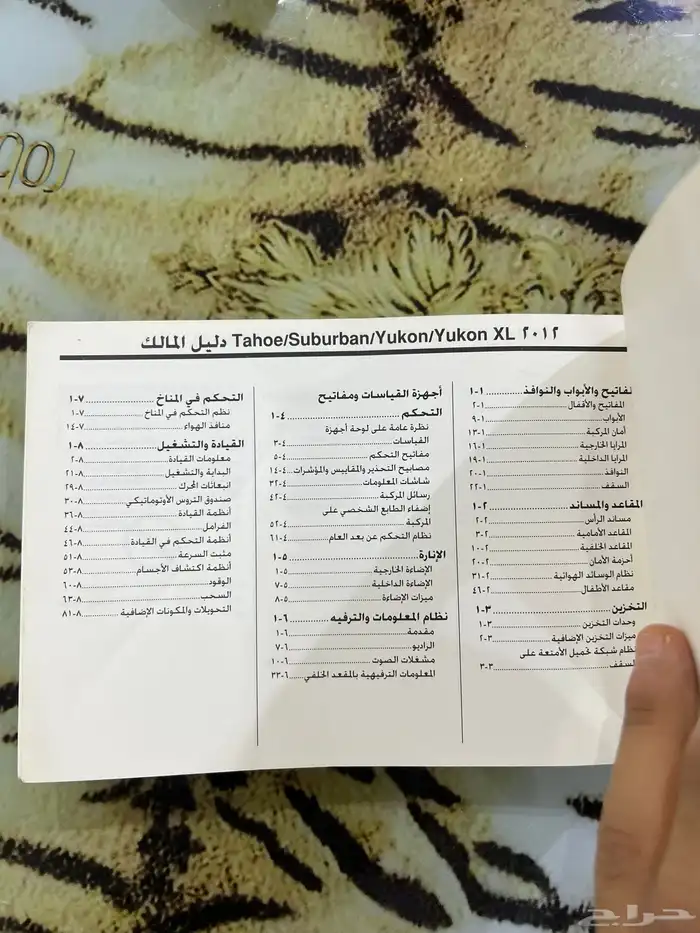 ٢٠١٢ Tahoe/Suburban/Yukon/Yukon XL دليل المالك
لمفاتيح والأبواب والنوافذ ١-١
المفاتيح والأقفال ٢-١
الأبواب ٩-١
أمان المركبة ١٣-١
المرايا الخارجية ١٦-١
المرايا الداخلية ١٩-١
النوافذ ٢٠-١
السقف ٢٢-١
المقاعد والمساند ٢-١
مساند الرأس ٢-٢
المقاعد الأمامية ٣-٢
المقاعد الخلفية ١٠-٢
أحزمة الأمان ٢٠-٢
نظام الوسائد الهوائية ٣١-٢
مقاعد الأطفال ٤٦-٢
التخزين ٣-١
وحدات التخزين ١-٣
ميزات التخزين الإضافية ٢-٣
نظام شبكة تحميل الأمتعة على
السقف ٣-٣
أجهزة القياسات ومفاتيح
التحكم ٤-١
نظرة عامة على لوحة أجهزة
القياسات ٣-٤
مفاتيح التحكم ٥-٤
مصابيح التحذير والمقاييس والمؤشرات ١٤-٤
شاشات المعلومات ٣٢-٤
رسائل المركبة ٤٢-٤
إضفاء الطابع الشخصي على
المركبة ٥٢-٤
نظام التحكم عن بعد العام ٦١-٤
الإنارة ٥-١
الإضاءة الخارجية ١-٥
الإضاءة الداخلية ٧-٥
ميزات الإضاءة ٨-٥
نظام المعلومات والترفيه ٦-١
مقدمة ١-٦
الراديو ٧-٦
مشغلات الصوت ١٠-٦
المعلومات الترفيهية بالمقعد الخلفي ٣٣-٦
التحكم في المناخ ٧-١
نظم التحكم في المناخ ١-٧
منافذ الهواء ١٤-٧
القيادة والتشغيل ٨-١
معلومات القيادة ٢-٨
البداية والتشغيل ٢١-٨
انبعاثات المحرك ٢٩-٨
صندوق التروس الأوتوماتيكي ٣٠-٨
أنظمة القيادة ٣٦-٨
الفرامل ٤٤-٨
أنظمة التحكم في القيادة ٤٦-٨
مثبت السرعة ٥١-٨
أنظمة اكتشاف الأجسام ٥٣-٨
الوقود ٦٠-٨
السحب ٦٣-٨
التحويلات والمكونات الإضافية ٨١-٨
حراج